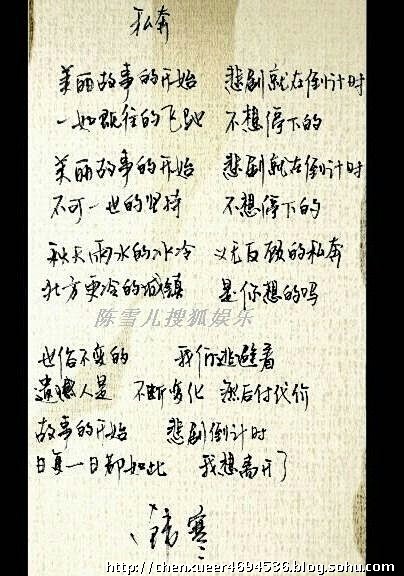 私奔
美丽故事的开始 悲剧就在倒计时
一如既往的飞驰 不想停下的
美丽故事的开始 悲剧就在倒计时
不可一世的坚持 不想停下的
秋天雨水的冰冷 义无反顾的私奔
北方更冷的城镇 是你想的吗
陈雪儿搜狐娱乐
世俗不变的 我们逃避着
遗憾人是 不断劣化 然后付代价
故事的开始 悲剧倒计时
日复一日都如此 我想离开了
韩寒
http://chenxueer4694536.blog.sohu.com